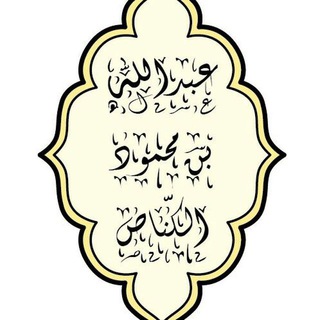 عبدالله
بن محمود
الكنّاص